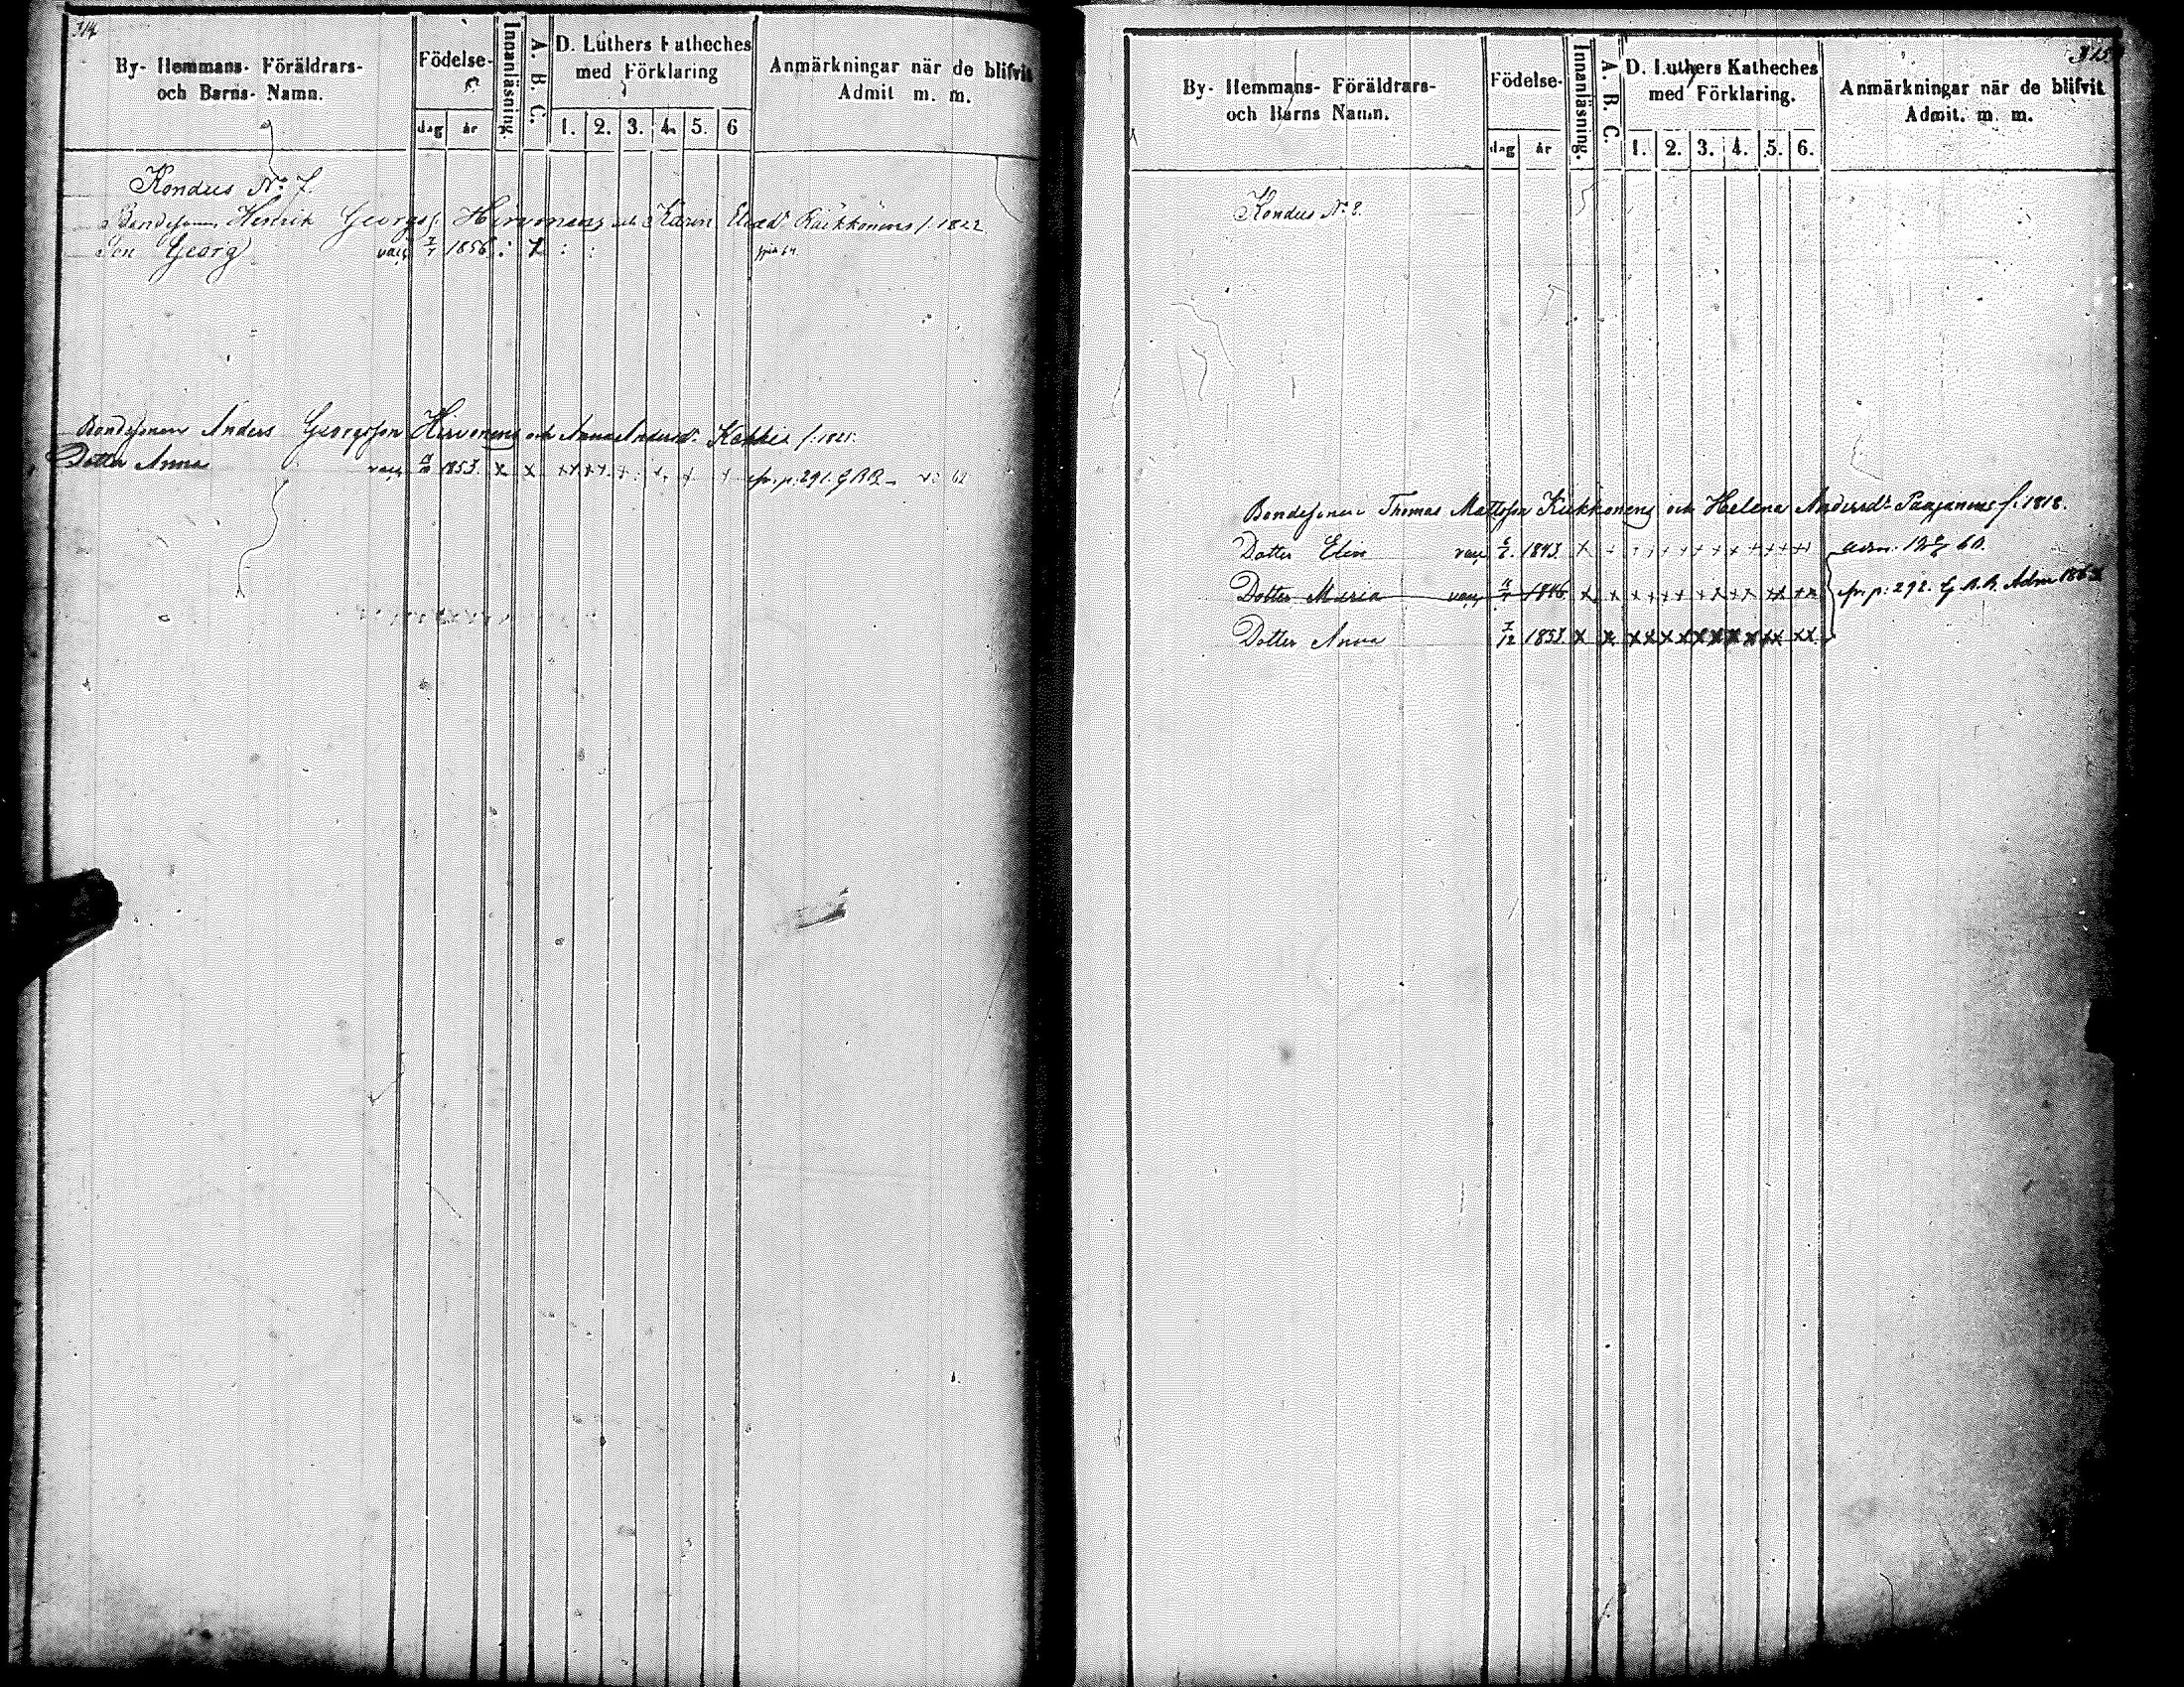 314
By- Hemmans- Föräldrars-
och Barns- Namn.
Födelse-
dag år
Innanläsning.
A. B. C.
D. Luthers Katheches
med Förklaring
1. 2. 3. 4. 5. 6
Anmärkningar när de blifvit
Admit m. m.
Kondus No 7.
Bondesonen Henrik Georgs. Hirvonens och Karin Räikkönens f. 1822
Son Georg vac. 1856 : X : :
Bondesonen Anders Georgsson Hirvonens och Anna Andersd. Kekkis f. 1821.
Dotter Anna vac. 1853. x x x x x x + : x + + + fr. p. 291. G.R.B. 62
315
By- Hemmans- Föräldrars-
och Barns Namn.
Födelse-
dag år
Innanläsning.
A. B. C.
D. Luthers Katheches
med Förklaring.
1. 2. 3. 4. 5. 6.
Anmärkningar när de blifvit
Admit. m. m.
Kondus No 8.
Bondesonen Thomas Mattsson Kiikkonens och Helena Andersd. Paajanens f. 1818.
Dotter Elin vac. 1843. x + + + + + + + + + + + + adm. 60.
Dotter Maria vac. 1846 x x x x x x x x x x x x x x fr. p: 292. G.R.B. Adm 1863
Dotter Anna 7/12 1853. x x x x x x x x x x x x x x